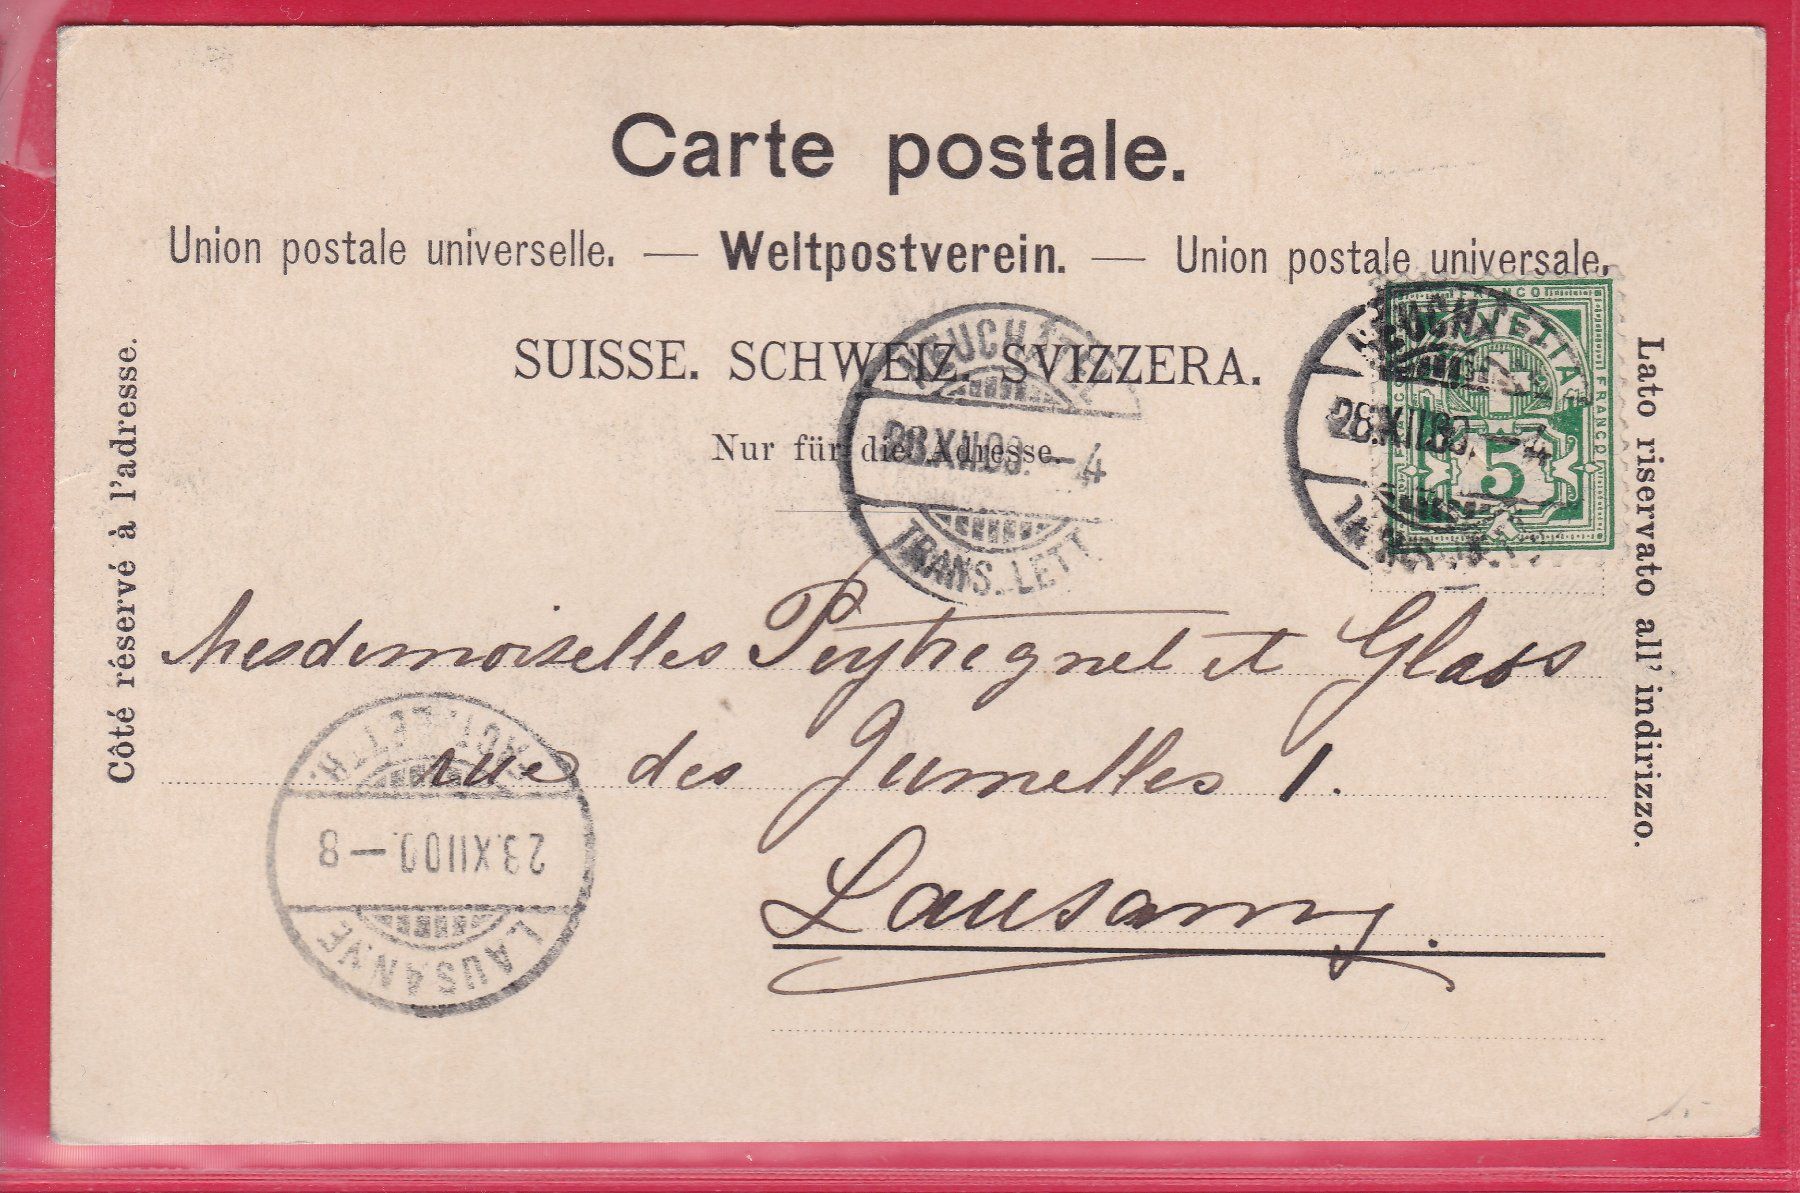 Carte postale.
Union postale universelle. — Weltpostverein. — Union postale universale.
SUISSE. SCHWEIZ. SVIZZERA.
Nur für die Adresse.
Côté réservé à l'adresse.
Lato riservato all' indirizzo.
NEUCHÂTEL
28.XII.00.–4
TRANS. LETT.
NEUCHÂTEL
28.XII.00.–4
FRANCO
FRANCO
5
Mesdemoiselles et Glass
rue des Jumelles 1.
Lausanne.
LAUSANNE
29.XII00.–8